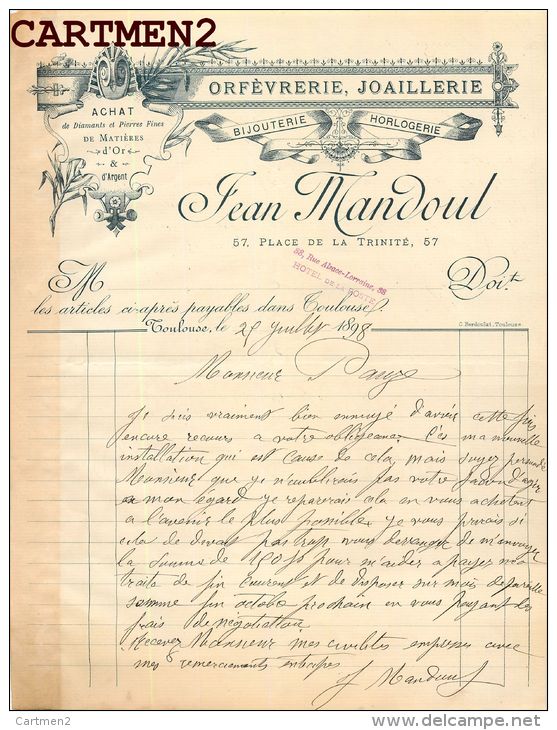 CARTMEN2
ORFÈVRERIE, JOAILLERIE
BIJOUTERIE HORLOGERIE
ACHAT
de Diamants et Pierres Fines
DE MATIÈRES
d'Or
&
d'Argent
Jean Mandoul
57, PLACE DE LA TRINITÉ, 57
58, Rue Alsace-Lorraine, 58
HOTEL DE LA POSTE
M Doit
les articles ci-après payables dans Toulouse.
Toulouse, le 25 Juillet 1898
C. Berdoulat, Toulouse
Monsieur Pauze
Je suis vraiment bien ennuyé d'avoir cette fois
encore recours a votre obligeance. C'est ma nouvelle
installation qui est cause de cela, mais soyez persuadé
Monsieur que je n'oublierais pas votre façon d'agir
a mon egard je reparerais cela en vous achetant
a l'avenir le plus possible. Je vous prierais si
cela ne devait pas trop vous deranger de m'envoyer
la somme de pour m'aider a payer mes
traites de fin Courant et de disposer sur moi de pareille
somme fin octobre prochain en vous payant des
frais de négotiation
Recevez Monsieur mes civilités empressées avec
mes remerciements anticipés
J Mandoul
Cartmen2
www.delcampe.net